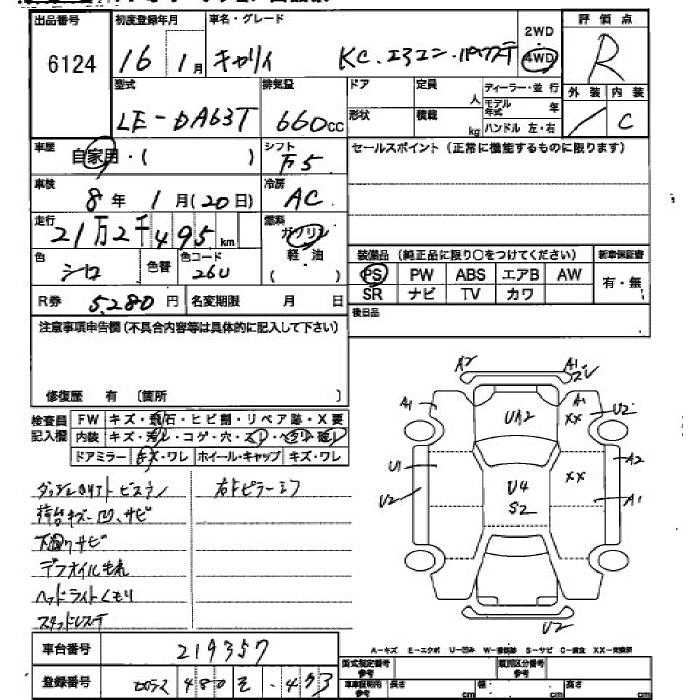 出品番号 初度登録年月 車名・グレード 2WD 評価点
6124 16 1月 キャリィ KC.エアコン.パワステ 4WD R
型式 排気量 ドア 定員 人 ディーラー・並行 外装 内装
LE-DA63T 660cc 形状 積載 kg モデル年式 年 ハンドル 左・右 C
車歴 自家用・( ) シフト セールスポイント (正常に機能するものに限ります)
万5
車検 8年 1月(20日) 冷房 AC
走行 21万2千495km 燃料 ガソリン
軽・油
装備品 (純正品に限り○をつけてください) 新車保証書
色 シロ 色替 色コード 26U
PS PW ABS エアB AW 有・無
SR ナビ TV カワ
R券 5,280円 名変期限 月 日 後日品
注意事項申告欄(不具合内容等は具体的に記入して下さい)
修復歴 有 〔箇所 〕
検査員 FW キズ・飛石・ヒビ割・リペア跡・X要
記入欄 内装 キズ・汚レ・コゲ・穴・スレ・ヘタリ・破レ
ドアミラー キズ・ワレ ホイール・キャップ キズ・ワレ
A2 A1
A1 UA2 A1 XX U2
U1 U4 XX A2
U2 S2 A1
U2
右Fピラーミフ
荷台キズ凹.サビ
下廻りサビ
デフオイルモレ
ヘッドライトくもり
スタッドレス
車台番号 219357
登録番号 480 そ ・493
A-キズ E-エクボ U-凹み S-サビ C-腐食 XX-交換済
型式指定番号 参考 類別区分番号 参考
車車証明用 参考 長さ cm 幅 cm 高さ cm